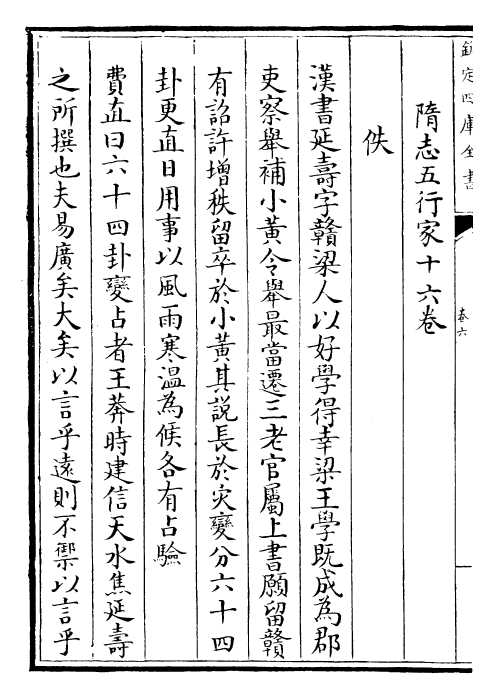 欽定四庫全書
卷六
隋志五行家十六卷
佚
漢書延壽字贛梁人以好學得幸梁王學既成為郡
吏察舉補小黃令舉最當遷三老官屬上書願留贛
有詔許增秩留卒於小黃其說長於灾變分六十四
卦更直日用事以風雨寒溫為候各有占驗
費直曰六十四卦變占者王莽時建信天水焦延壽
之所撰也夫易廣矣大矣以言乎遠則不禦以言乎